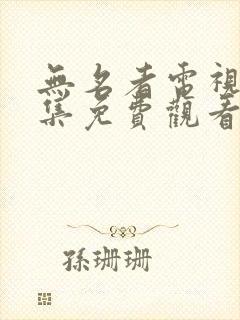 無名者電視
集免費觀看
孫珊珊